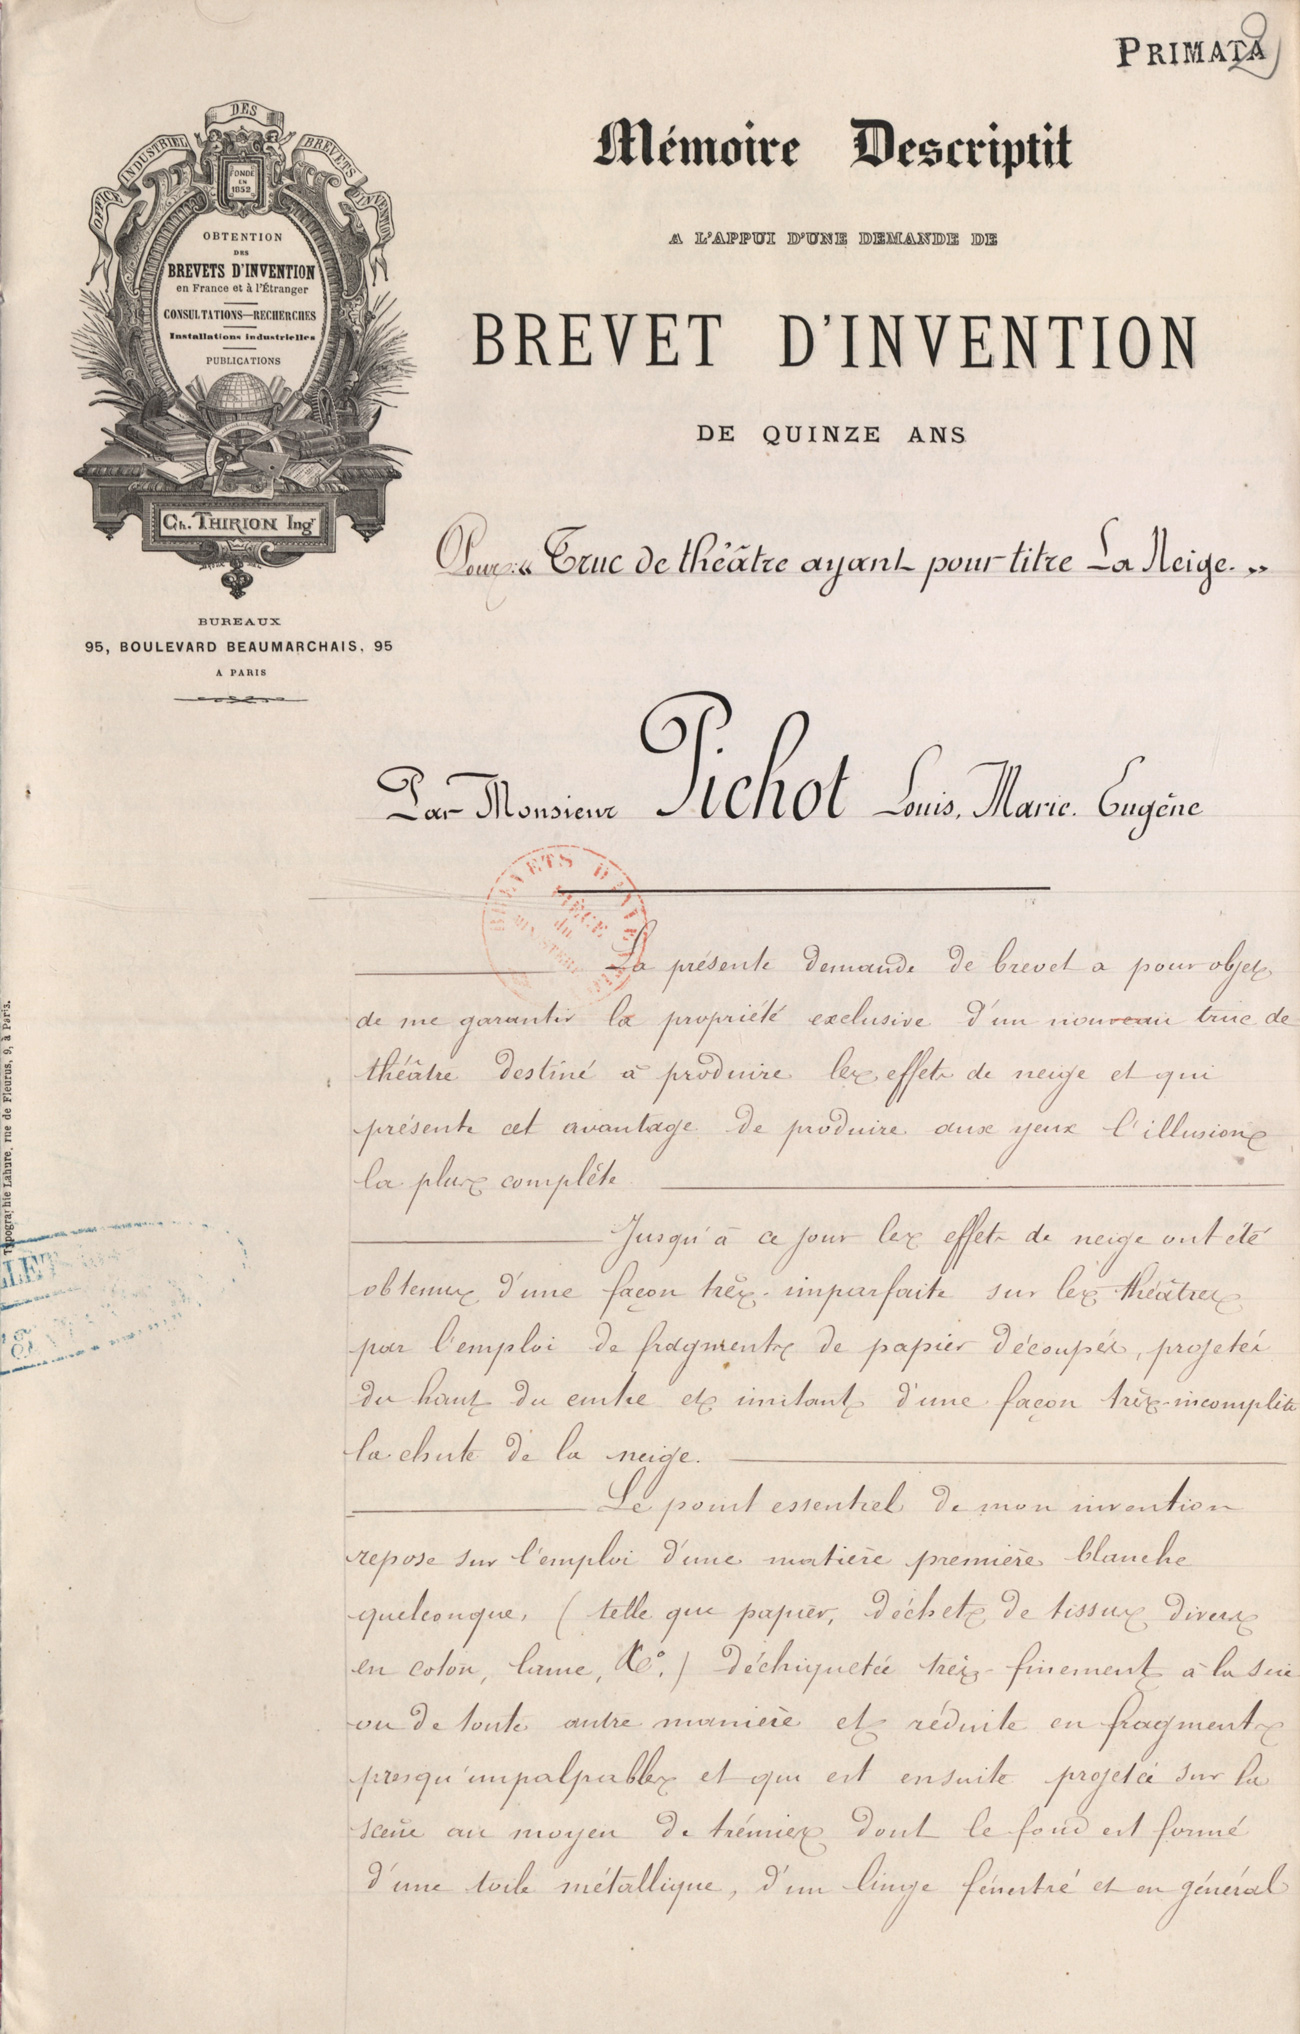 PRIMATA
2
OFFICE INDUSTRIEL DES BREVETS D'INVENTION
FONDÉ
EN
1852
OBTENTION
DES
BREVETS D'INVENTION
en France et à l'Étranger
CONSULTATIONS—RECHERCHES
Installations industrielles
PUBLICATIONS
Ch. THIRION Ingr
BUREAUX
95, BOULEVARD BEAUMARCHAIS, 95
A PARIS
Mémoire Descriptif
A L'APPUI D'UNE DEMANDE DE
BREVET D'INVENTION
DE QUINZE ANS
Pour: « Truc de théâtre ayant pour titre La Neige. »
Par Monsieur Pichot Louis, Marie. Eugène
BREVETS D'INVE
La présente demande de brevet a pour objet
de me garantir la propriété exclusive d'un nouveau truc de
théâtre destiné à produire les effets de neige et qui
présente cet avantage de produire aux yeux l'illusion
la plus complète
Jusqu'à ce jour les effets de neige ont été
obtenus d'une façon très-imparfaite sur les théâtres
par l'emploi de fragments de papier découpés, projetés
du haut du cintre et imitant d'une façon très-incomplète
la chute de la neige.
Le point essentiel de mon invention
repose sur l'emploi d'une matière première blanche
quelconque, (telle que papier, déchets de tissus divers
en coton, laine, &c.) déchiquetée très-finement à la scie
ou de toute autre manière et réduite en fragments
presqu'impalpables et qui est ensuite projetée sur la
scène au moyen de trémies dont le fond est formé
d'une toile métallique, d'un linge fénestré et en général
Typographie Lahure, rue de Fleurus, 9, à Paris.